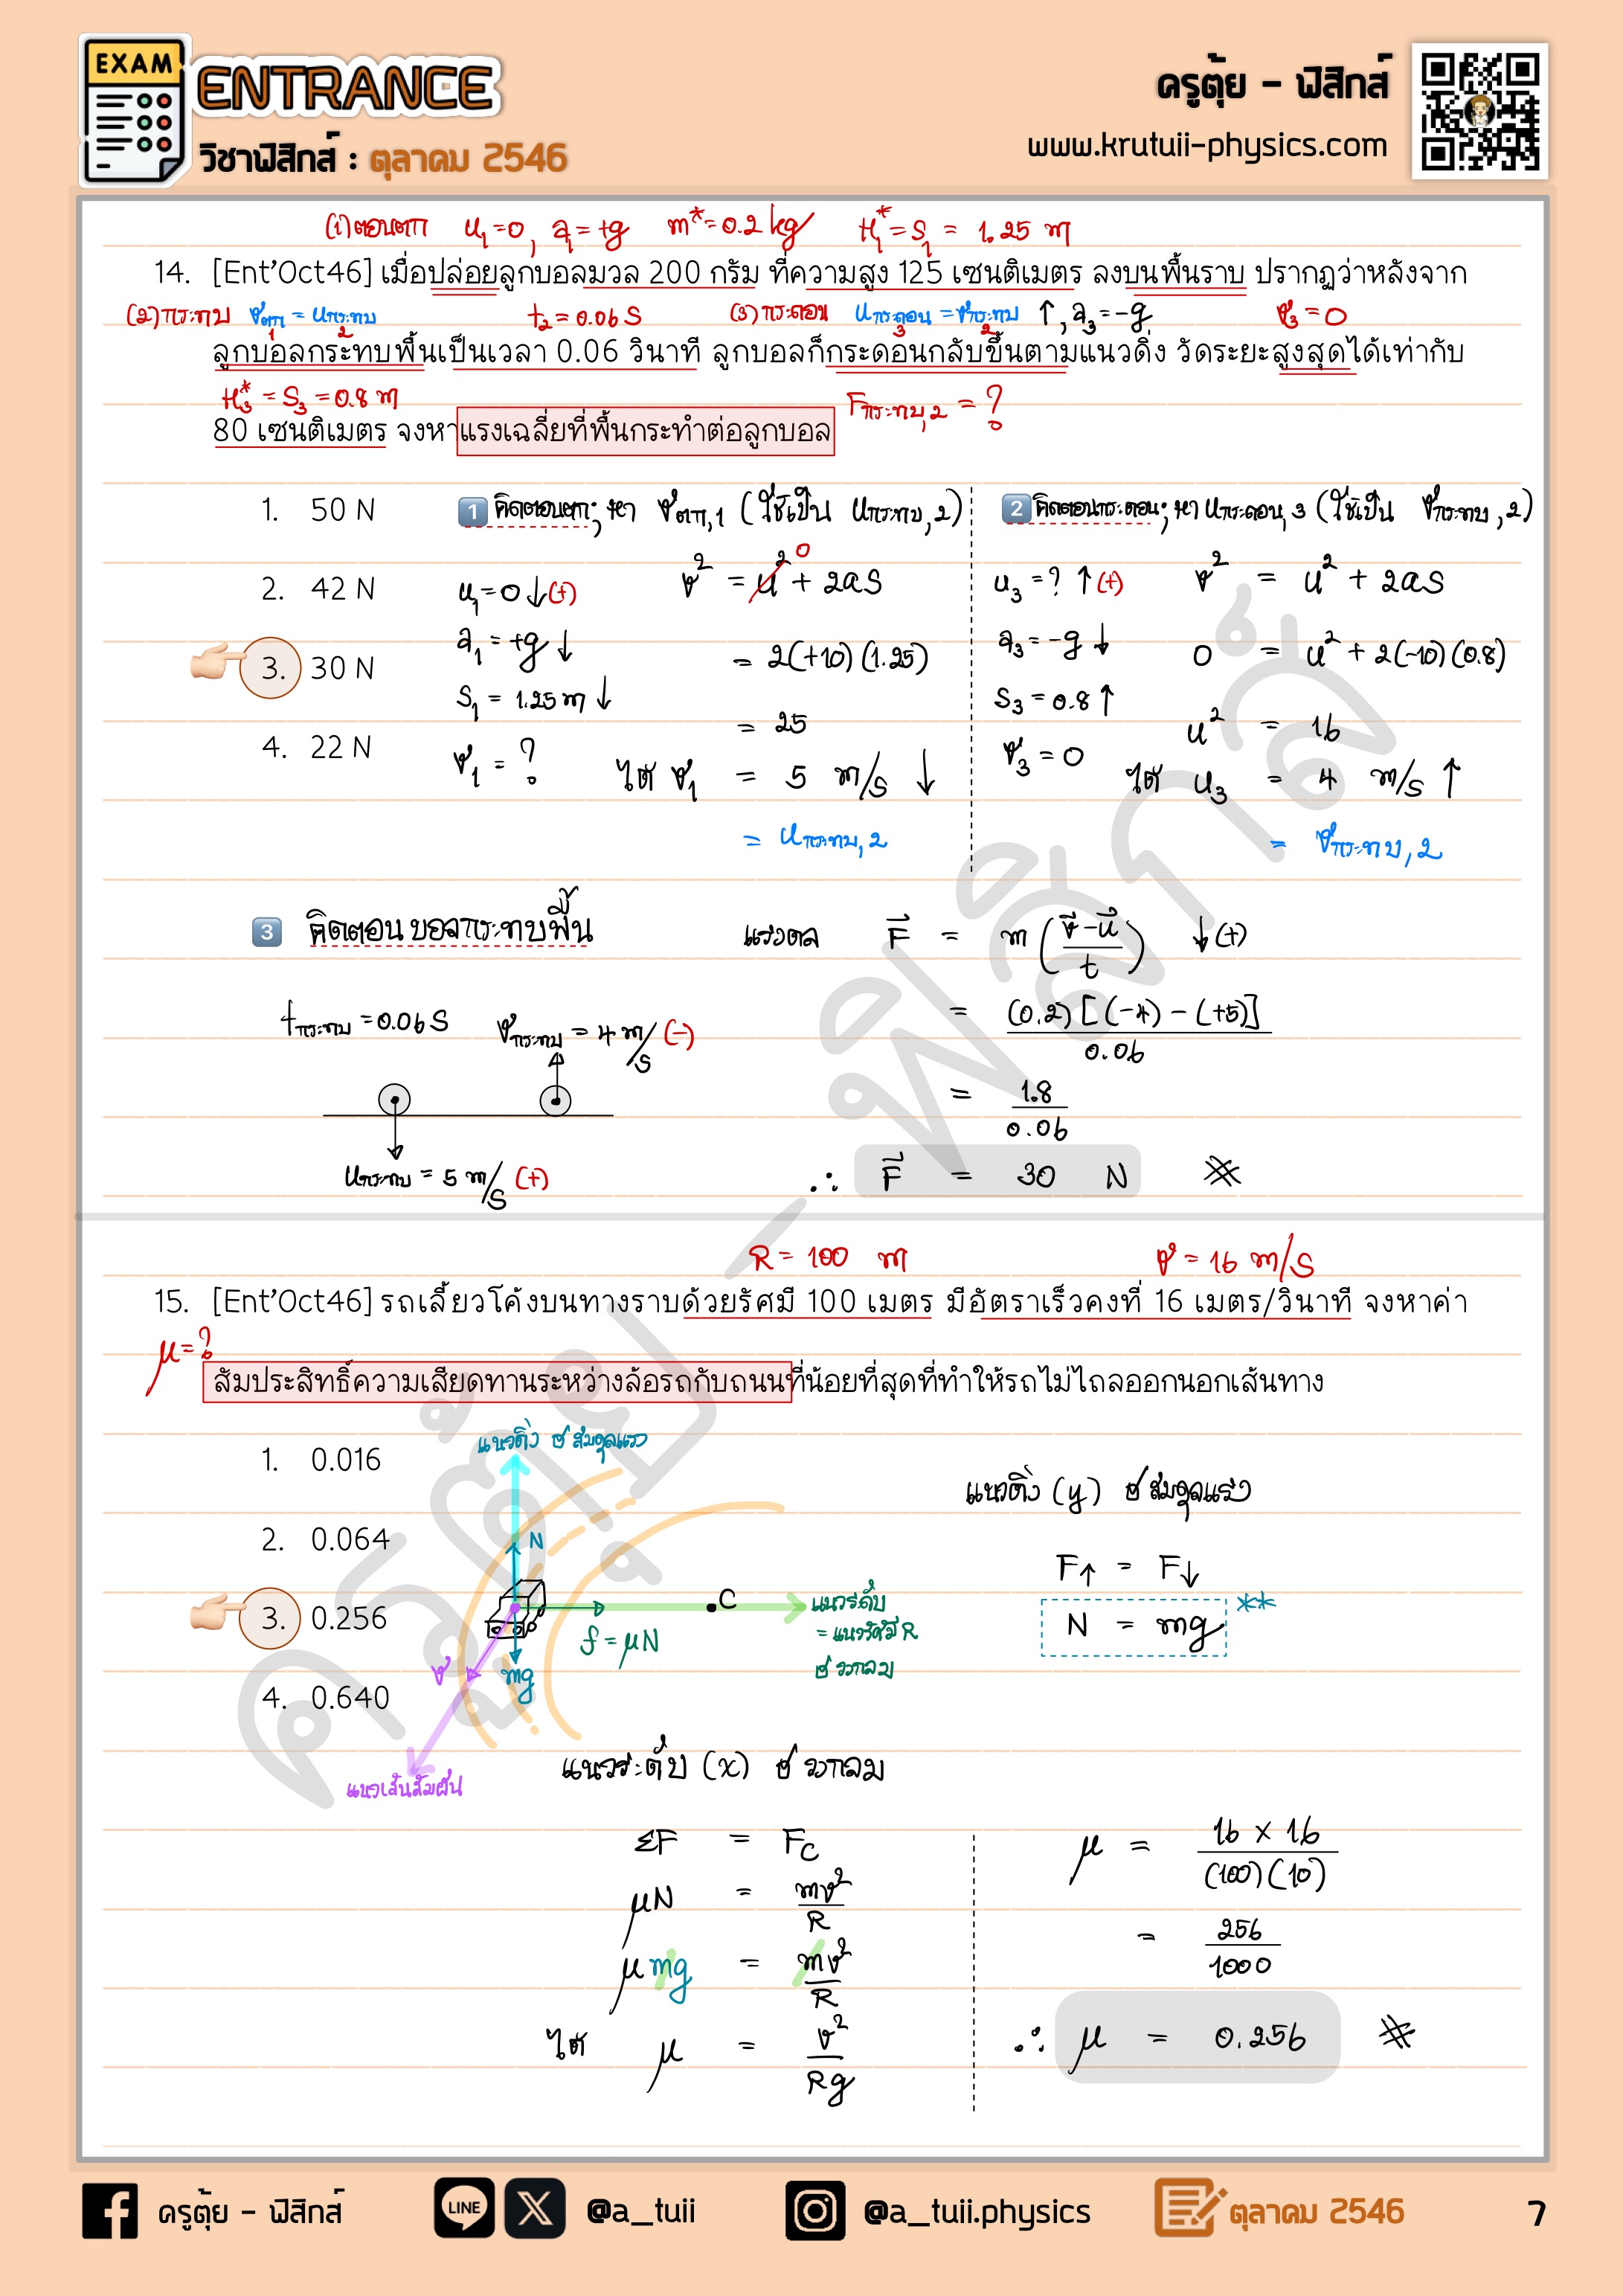 EXAM
ENTRANCE
วิชาฟิสิกส์ : ตุลาคม 2546
ครูตุ้ย - ฟิสิกส์
www.krutuii-physics.com
(1) ตอนตก u₁=0, a₁=+g m*=0.2 kg H₁*=S₁ = 1.25 m
14. [Ent'Oct46] เมื่อปล่อยลูกบอลมวล 200 กรัม ที่ความสูง 125 เซนติเมตร ลงบนพื้นราบ ปรากฏว่าหลังจาก
(2) กระทบ vตก,1 = uกระทบ,2 t₂=0.06 s (3) กระดอน uกระดอน,3 = vกระทบ,2 ↑, a₃=-g v₃=0
ลูกบอลกระทบพื้นเป็นเวลา 0.06 วินาที ลูกบอลก็กระดอนกลับขึ้นตามแนวดิ่ง วัดระยะสูงสุดได้เท่ากับ
H₃* = S₃ = 0.8 m Fกระทบ,2 = ?
80 เซนติเมตร จงหาแรงเฉลี่ยที่พื้นกระทำต่อลูกบอล
1. 50 N
2. 42 N
3. 30 N
4. 22 N
1 คิดตอนตก; หา vตก,1 (ใช้เป็น uกระทบ,2)
u₁=0 ↓(+) v² = u²⁰ + 2as
a₁ = +g ↓ = 2(+10)(1.25)
S₁ = 1.25 m ↓ = 25
v₁ = ? ได้ v₁ = 5 m/s ↓
= uกระทบ,2
2 คิดตอนกระดอน; หา uกระดอน,3 (ใช้เป็น vกระทบ,2)
u₃ = ? ↑(+) v² = u² + 2as
a₃ = -g ↓ 0 = u² + 2(-10)(0.8)
S₃ = 0.8 ↑ u² = 16
v₃ = 0 ได้ u₃ = 4 m/s ↑
= vกระทบ,2
3 คิดตอนบอลกระทบพื้น แรงดล F = m((v-u)/t) ↓(+)
tกระทบ = 0.06 s vกระทบ = 4 m/s (-)
= (0.2)[(-4)-(+5)]/0.06
= 1.8/0.06
uกระทบ = 5 m/s (+)
∴ F = 30 N
R = 100 m v = 16 m/s
15. [Ent'Oct46] รถเลี้ยวโค้งบนทางราบด้วยรัศมี 100 เมตร มีอัตราเร็วคงที่ 16 เมตร/วินาที จงหาค่า
μ=?
สัมประสิทธิ์ความเสียดทานระหว่างล้อรถกับถนนที่น้อยที่สุดที่ทำให้รถไม่ไถลออกนอกเส้นทาง
1. 0.016
2. 0.064
3. 0.256
4. 0.640
แนวดิ่ง ☺ สมดุลแรง
N
C
f = μN
mg
v
แนวระดับ
= แนวรัศมี R
☺ วงกลม
แนวเส้นสัมผัส
แนวดิ่ง (y) ☺ สมดุลแรง
F↑ = F↓
N = mg **
แนวระดับ (x) ☺ วงกลม
ΣF = Fc
μN = mv²/R
μmg = mv²/R
ได้ μ = v²/Rg
μ = 16 x 16/(100)(10)
= 256/1000
∴ μ = 0.256
ครูตุ้ย - ฟิสิกส์
ครูตุ้ย - ฟิสิกส์
LINE
X
@a_tuii
@a_tuii.physics
ตุลาคม 2546
7